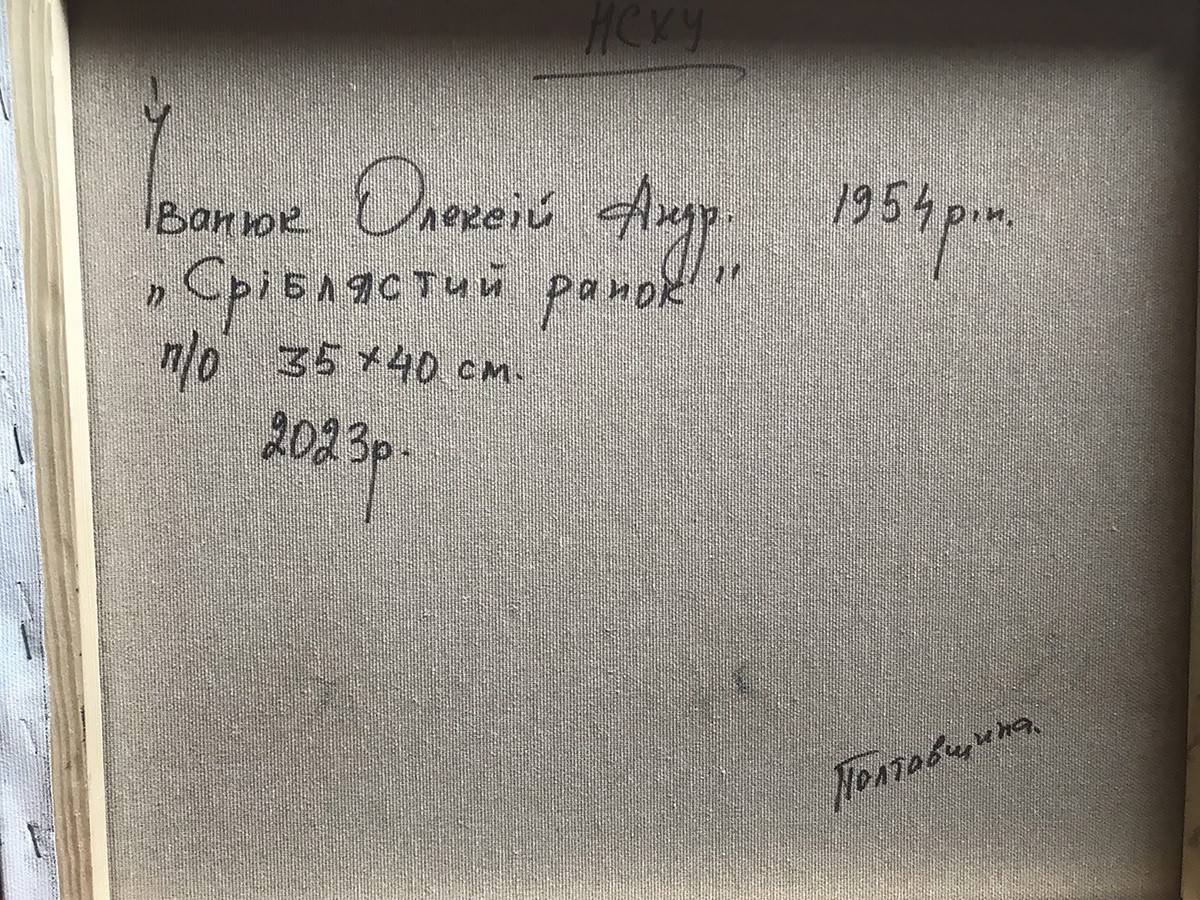 НСХУ
Іванюк Олексій Андр. 1954 р.н.
„Сріблястий ранок"
п/о 35 × 40 см.
2023р.
Полтавщина.